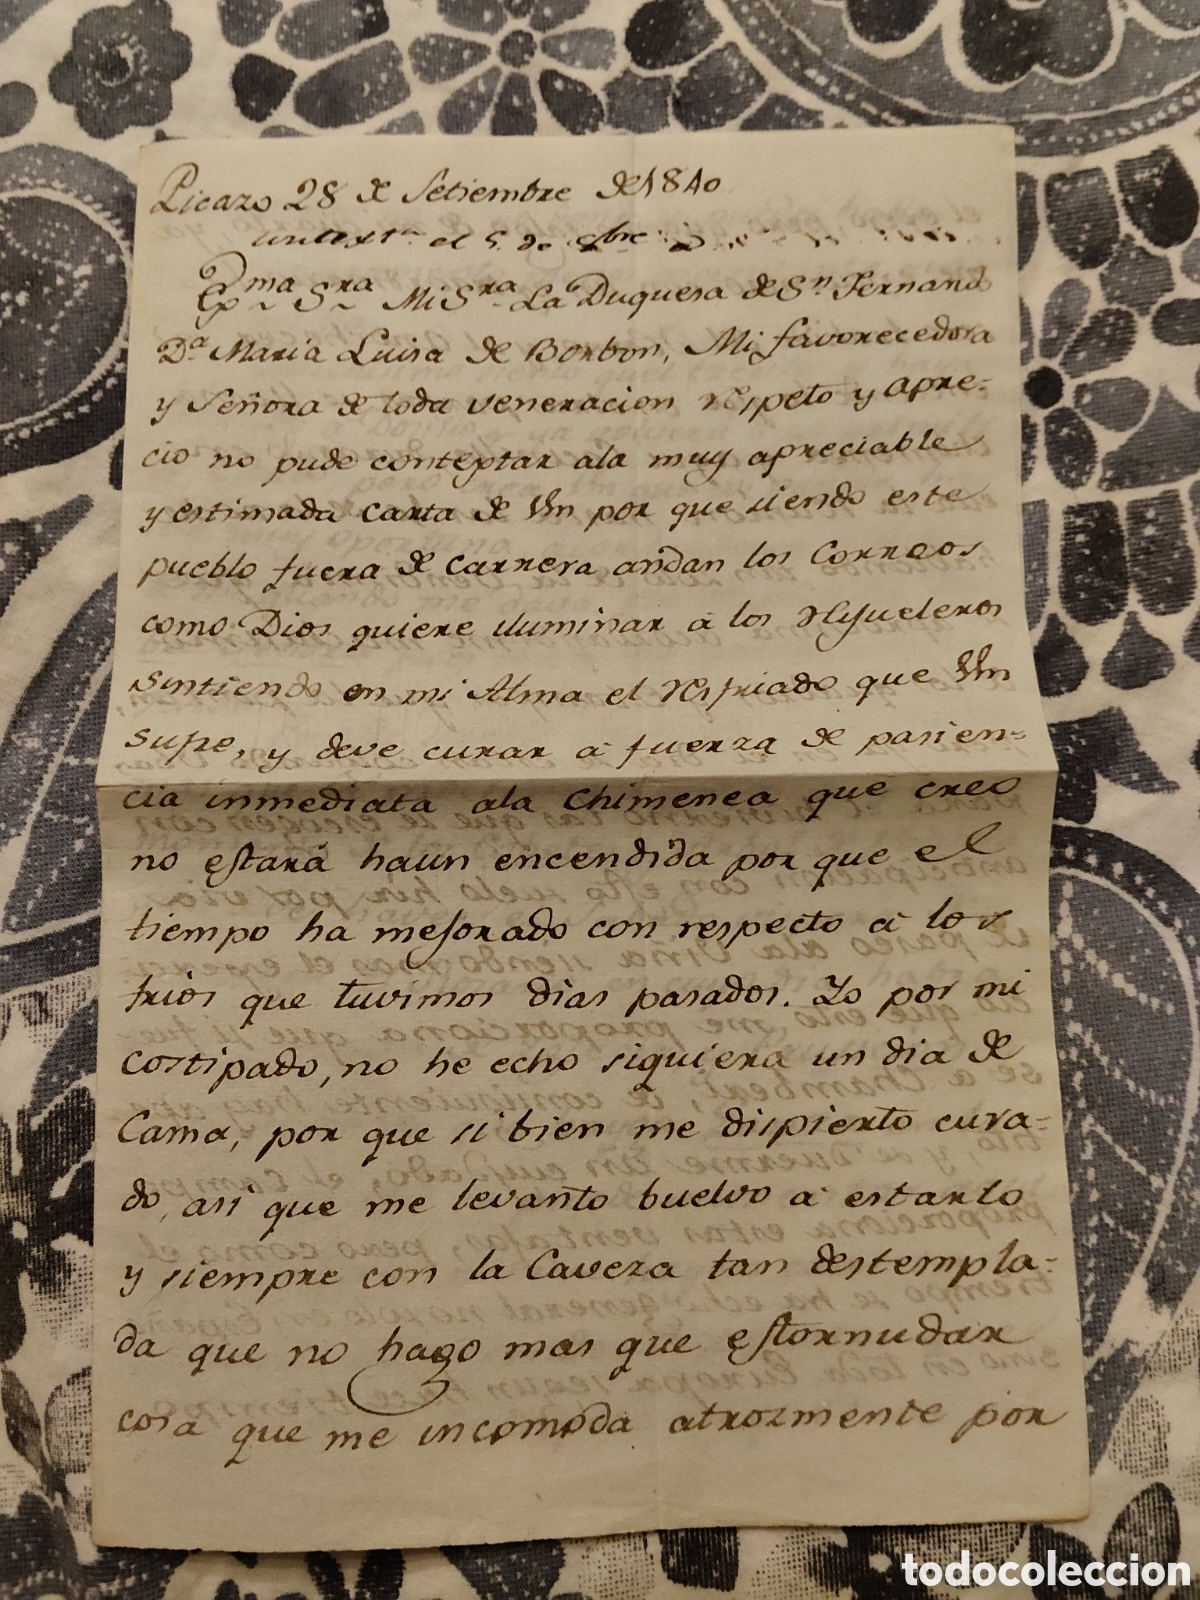 Picazo 28 de Setiembre de 1840
el 5 de bre
Exma Sra Mi Sra La Duquesa de Sn Fernando
Da Maria Luisa de Borbon, Mi favorecedora
y Señora de toda veneracion respeto y apre-
cio no pude conteptar ala muy apreciable
y estimada carta de Vm por que siendo este
pueblo fuera de carrera andan los Correos
como Dios quiere iluminar á los Hijueleros
sintiendo en mi Alma el resfriado que Vm
supe, y deve curar á fuerza de pasien-
cia inmediata ala chimenea que creo
no estará haun encendida por que el
tiempo ha mejorado con respecto á los
frios que tuvimos dias pasados. Yo por mi
costipado, no he echo siquiera un dia de
Cama, por que si bien me dispierto cura-
do, asi que me levanto buelvo á estarlo
y siempre con la Caveza tan destempla-
da que no hago mas que estornudar
cosa que me incomoda atrozmente por
todocoleccion